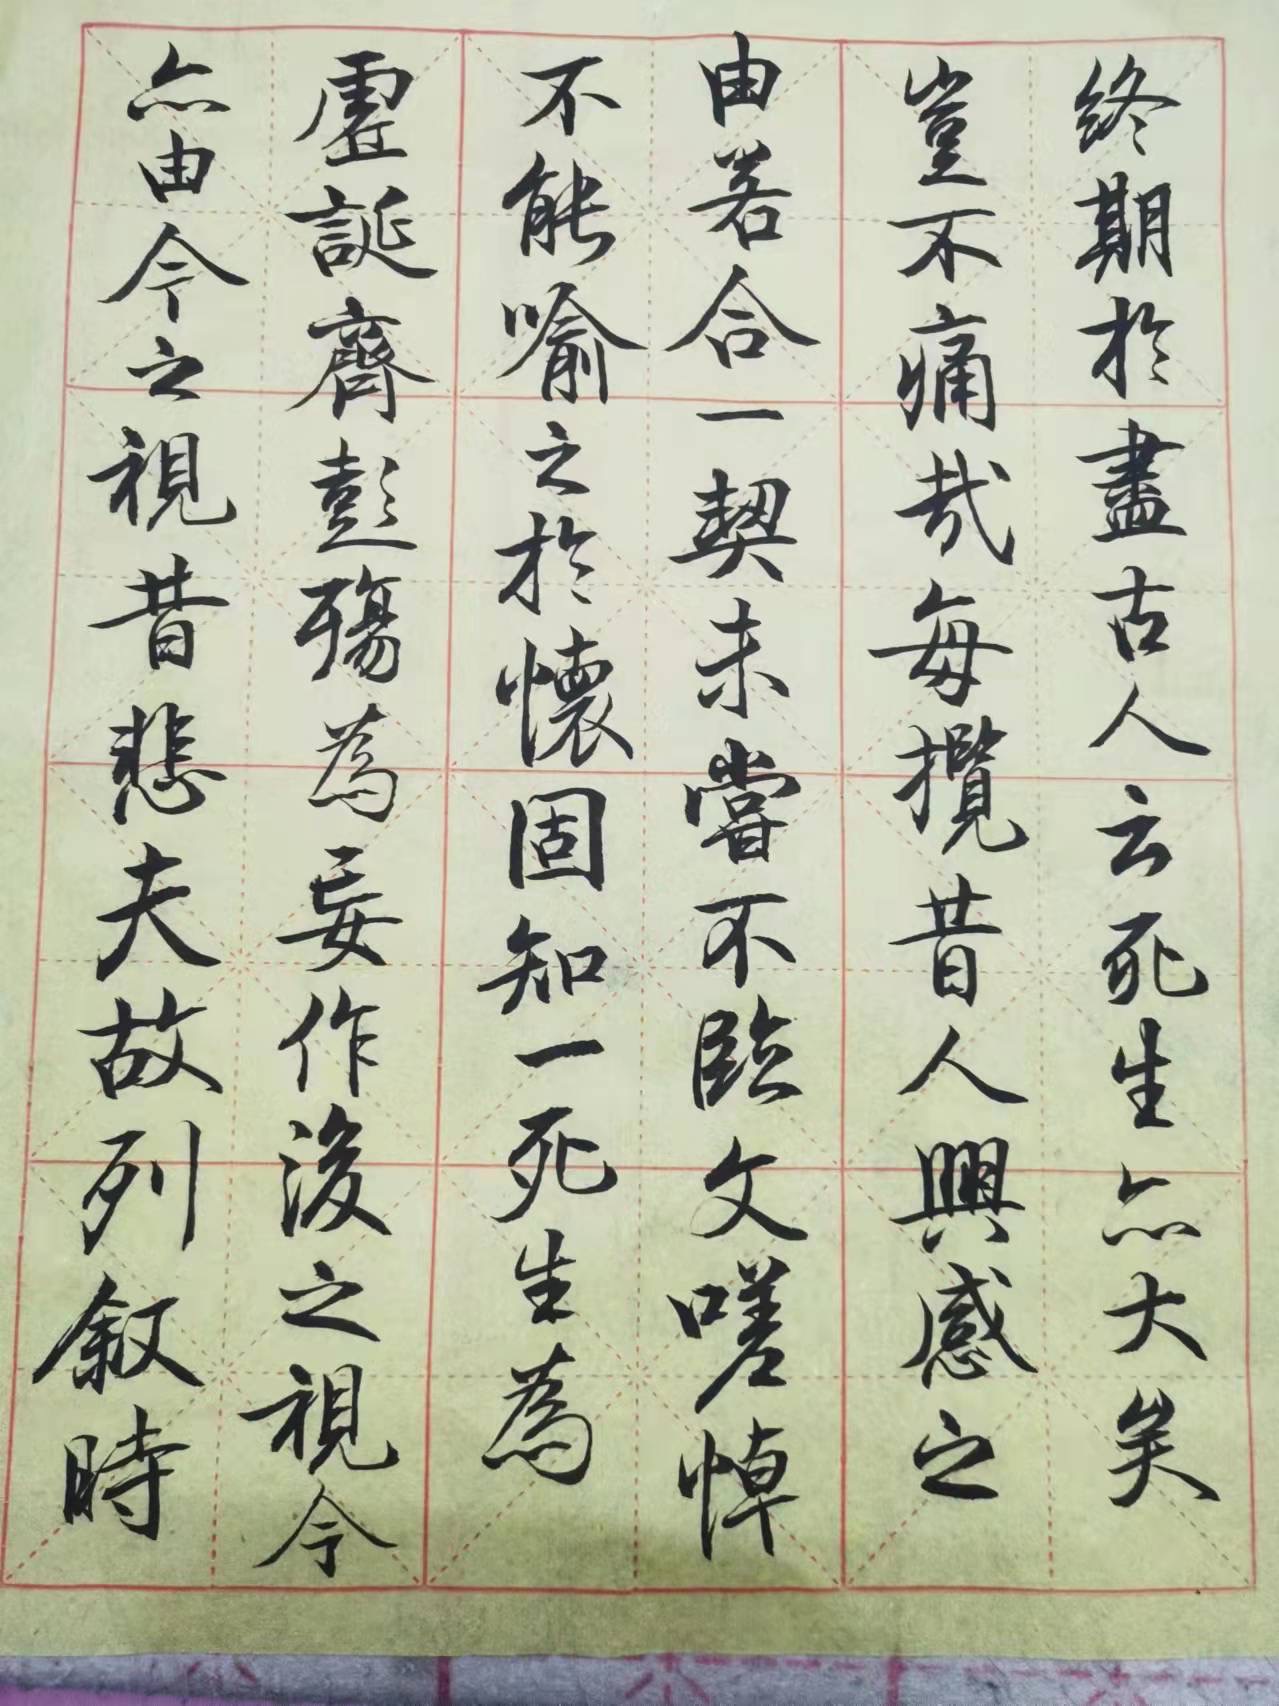 終期於盡古人云死生亦大矣
豈不痛哉每攬昔人興感之
由若合一契未嘗不臨文嗟悼
不能喻之於懷固知一死生為
虛誕齊彭殤為妄作後之視今
亦由今之視昔悲夫故列叙時